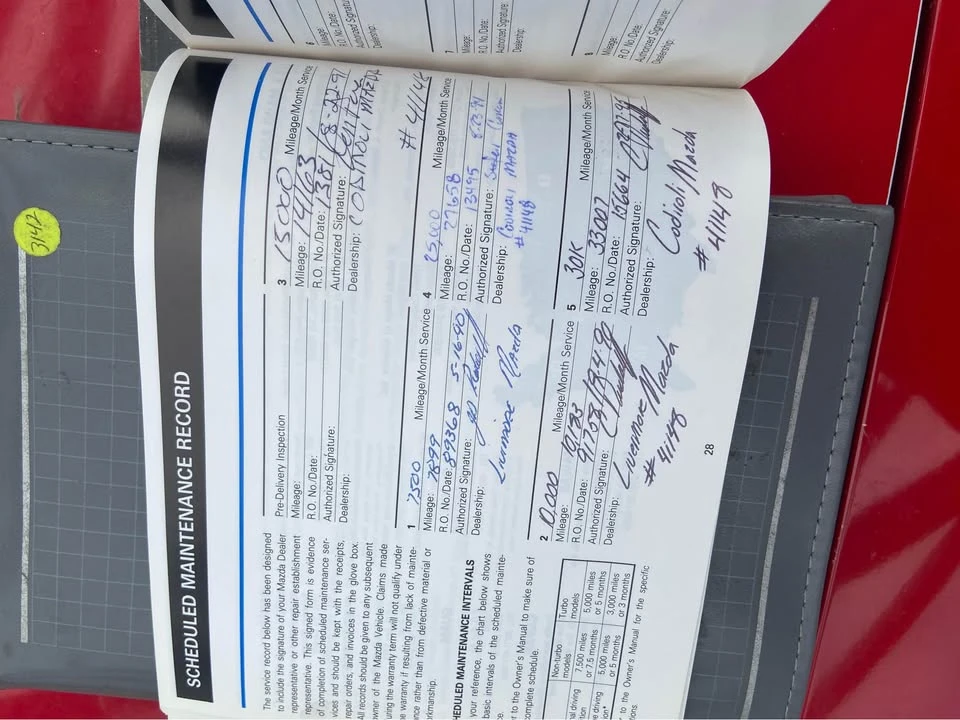 SCHEDULED MAINTENANCE RECORD
The service record below has been designed
to include the signature of your Mazda Dealer
representative or other repair establishment
representative. This signed form is evidence
of completion of scheduled maintenance ser-
vices and should be kept with the receipts,
repair orders, and invoices in the glove box.
All records should be given to any subsequent
owner of the Mazda Vehicle. Claims made
during the warranty term will not qualify under
warranty if resulting from lack of mainte-
rather than from defective material or
HEDULED MAINTENANCE INTERVALS
your reference, the chart below shows
basic intervals of the scheduled mainte-
to the Owner's Manual to make sure of
complete schedule.
Non-turbo models Turbo models
driving 7,500 miles or 7.5 months 5,000 miles or 5 months
driving 5,000 miles or 5 months 3,000 miles or 3 months
to the Owner's Manual for the specific
Pre-Delivery Inspection
Mileage:
R.O. No./Date:
Authorized Signature:
Dealership:
1 7500 Mileage/Month Service
Mileage: 7899
R.O. No./Date: 89368 5-16-90
Authorized Signature:
Dealership: Livermore Mazda
2 10,000 Mileage/Month Service
Mileage: 10183
R.O. No./Date: 91758
Authorized Signature:
Dealership: Livermore Mazda
# 41148
3 15000 Mileage/Month Service
Mileage:
R.O. No./Date: 1381
Authorized Signature:
Dealership: Codiroli Mazda
# 41148
4 25,000 Mileage/Month Service
Mileage: 27658
R.O. No./Date: 13495
Authorized Signature:
Dealership: Codiroli Mazda
# 41148
5 30K Mileage/Month Service
Mileage: 33007
R.O. No./Date: 15664
Authorized Signature:
Dealership:
Codioli Mazda
# 41148
28
6
Mileage:
R.O. No./Date:
Authorized Signature:
Dealership:
7
Mileage:
R.O. No./Date:
Authorized Signature:
Dealership:
8
Mileage:
R.O. No./Date:
Authorized Signature:
Dealership:
3142